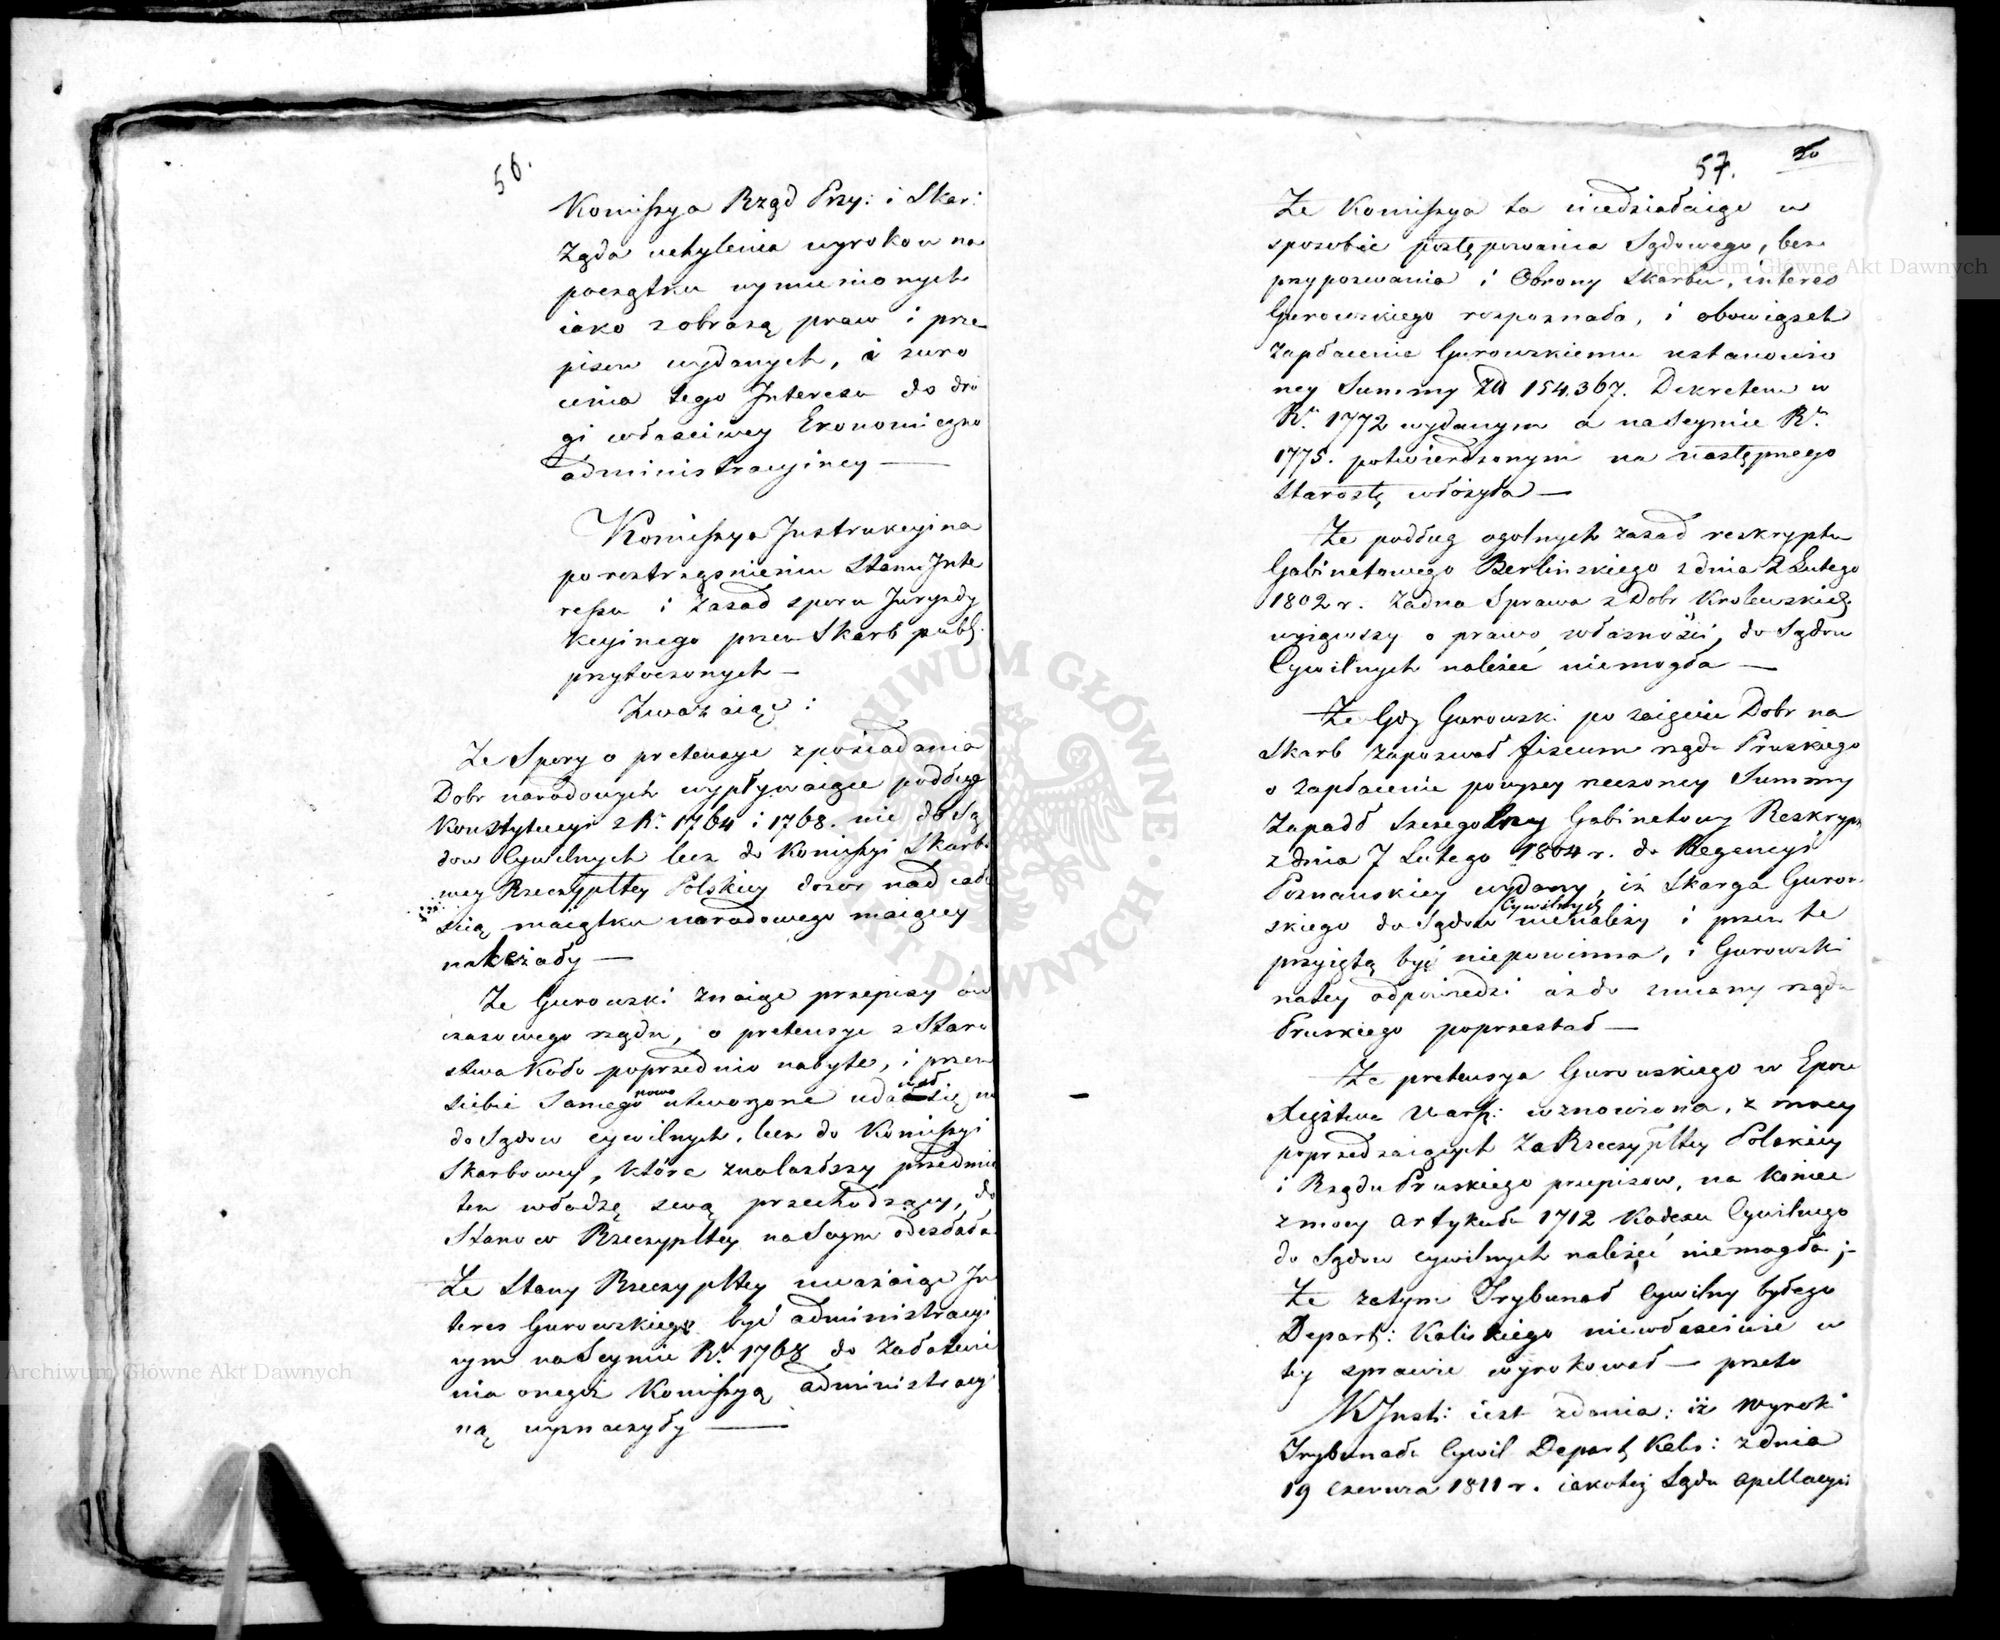 56.
Komissya Rząd Przy: i Skar:
Żąda uchylenia wyrokow na
początku wymienionych
iako z obrazą praw i prze
pisow wydanych, i zwro
cenia tego Interesu do dro
gi własciwey Ekonomiczno
administracyiney —
Komissya Instrukcyina
po roztrząsnieniu Stanu Inte
ressu i zasad sporu Jurysdy
kcyinego przez Skarb publ:
przytoczonych —
Zważaiąc:
Że Spory o pretensye z posiadania
Dobr narodowych wypływaiące podług
Konstytucyi z Ru 1764 i 1768. nie do Są
dow Cywilnych lecz do Komissyi Skarbo
wey Rzeczypltey Polskiey dozor nad cało
scią maiątku narodowego maiącey
należały —
Że Gurowski znaiąc przepisy ów
czasowego rządu, o pretensye z Staro
stwa Koło poprzednio nabyte, i przez
siebie Samego nowo utworzone udał się nie
do Sądow cywilnych, lecz do Komissyi
Skarbowey, która znalazłszy przedmio
ten władzę swą przechodzący, do
Stanow Rzeczypltey na Seym odesłała.
Że Stany Rzeczypltey uważaiąc In
teres Gurowskiego być administracyi
nym na Seymie Ru 1768 do załatwie
nia onegoż Komissyą administracyi
ną wyznaczyły —
57. 30
Że Komissya ta niedziałaiąc w
sposobie postępowania Sądowego, bez
przypozwania i Obrony Skarbu, interes
Gurowskiego rozpoznała, i obowiązek
zapłacenie Gurowskiemu ustanowio
ney Summy Złł 154.367. Dekretem w
Ru 1772 wydanym a na Seymie Ru
1775. potwierdzonym na następnego
Starostę włożyła —
Że podług ogolnych zasad reskryptu
Gabinetowego Berlinskiego z dnia 2 Lutego
1802 r. żadna Sprawa z Dobr Krolewskich
wyiąwszy o prawo własności, do Sądow
Cywilnych należeć niemogła —
Że Gdy Gurowski po zaięciu Dobr na
Skarb zapozwał fiscum rządu Pruskiego
o zapłacenie powyzey rzeczoney Summy
Zapadł Szczegolny Gabinetowy Reskrypt
z dnia 7 Lutego 1804 r. do Regencyi
Poznanskiey wydany, iż Skarga Gurow
skiego do Sądow Cywilnych nienależy i przez te
przyiętą być niepowinna, i Gurowski
na tey odpowiedzi aż do zmiany rządu
Pruskiego poprzestał —
Że pretensya Gurowskiego w Epoce
Xięstwa Warsz: wznowiona, z mocy
poprzedzaiących za Rzeczypltey Polskiey
i Rządu Pruskiego przepisow, na koniec
z mocy artykułu 1712 Kodexu Cywilnego
do Sądow cywilnych należeć niemogła;—
Że zatym Trybunał Cywilny byłego
Depart: Kaliskiego niewłasciwie w
tey sprawie wyrokował — przeto
K Inst: iest zdania: iż Wyrok
Trybunału Cywil Depart Kalis: z dnia
19 Czerwca 1811 r. iakoteż Sądu apellacyi
Archiwum Główne Akt Dawnych
Archiwum Główne Akt Dawnych
ARCHIWUM GŁÓWNE AKT DAWNYCH